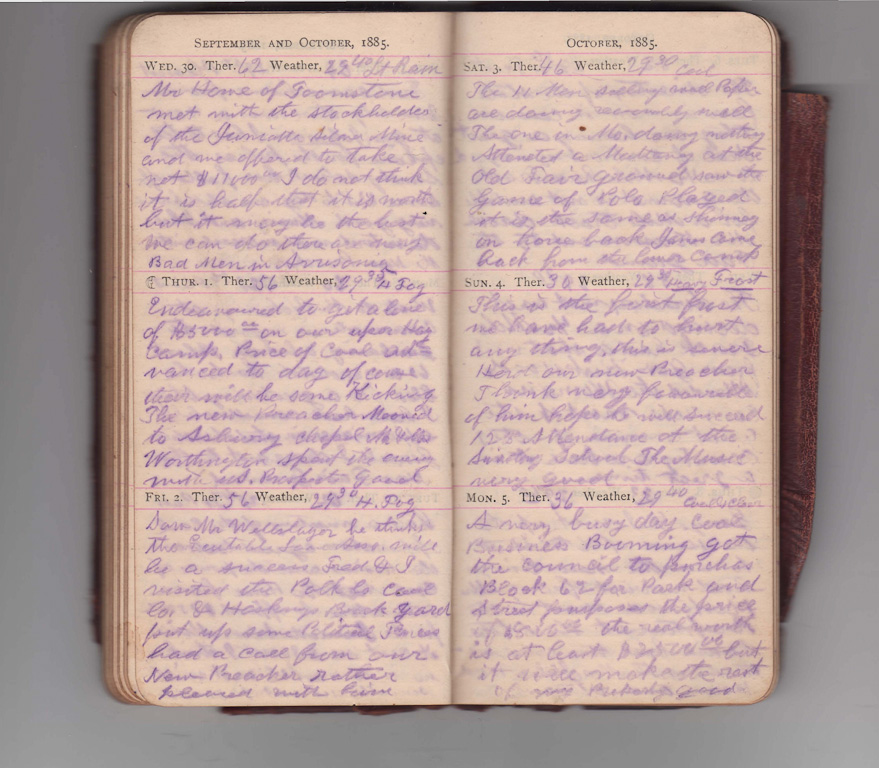 SEPTEMBER AND OCTOBER, 1885.
WED. 30. Ther. 62 Weather, 29 40 Lt Rain
Mr Horne of Toomstone
met with the stockholders
of the Juniatta Silver Mine
and we offered to take
net $11000 00 I do not think
it is half that it is worth
but it may be the best
we can do there are many
Bad Men in Arrisonia
THUR. 1. Ther. 56 Weather, 29 35 H Fog
Endeavoured to get a loan
of $5000 00 on our
Camp. Price of Coal ad=
vanced to day of course
there will be some Kicking
The new Preacher Mooved
to Asbury chapel Mr & Mrs
Worthington spent the eveng
with us. Prospects Good
FRI. 2. Ther. 56 Weather, 29 30 H. Fog
Saw Mr he thinks
the Equitable Loan Assn. will
be a success Fred & I
visited the Polk Co Coal
Co. & Hastings Brick Yard
put up some Political Fences
had a call from our
New Preacher rather
pleased with him
OCTOBER, 1885.
SAT. 3. Ther. 46 Weather, 29 30 Cool
The 11 Men selling
are doing reasonably well
The one in Mo. doing nothing
Attended a at the
Old Fair ground saw the
Game of Polo Played
it is the same as shinney
on horse back Jones came
back from the lower camp
SUN. 4. Ther. 30 Weather, 29 Heavy Frost
This is the first frost
we have had to hurt
any thing, this is severe
Herd our new Preacher
Think very favourible
of him hope he will succeed
125 Attendance at the
Sunday School The Music
very good
MON. 5. Ther. 36 Weather, 29 40 Cool & Clear
A very busy day Coal
Buisiness Booming got
the council to purchas
Block 62 for Park and
Street purposes the price
if the real worth
is at least but
it will make the rest
of my Property good